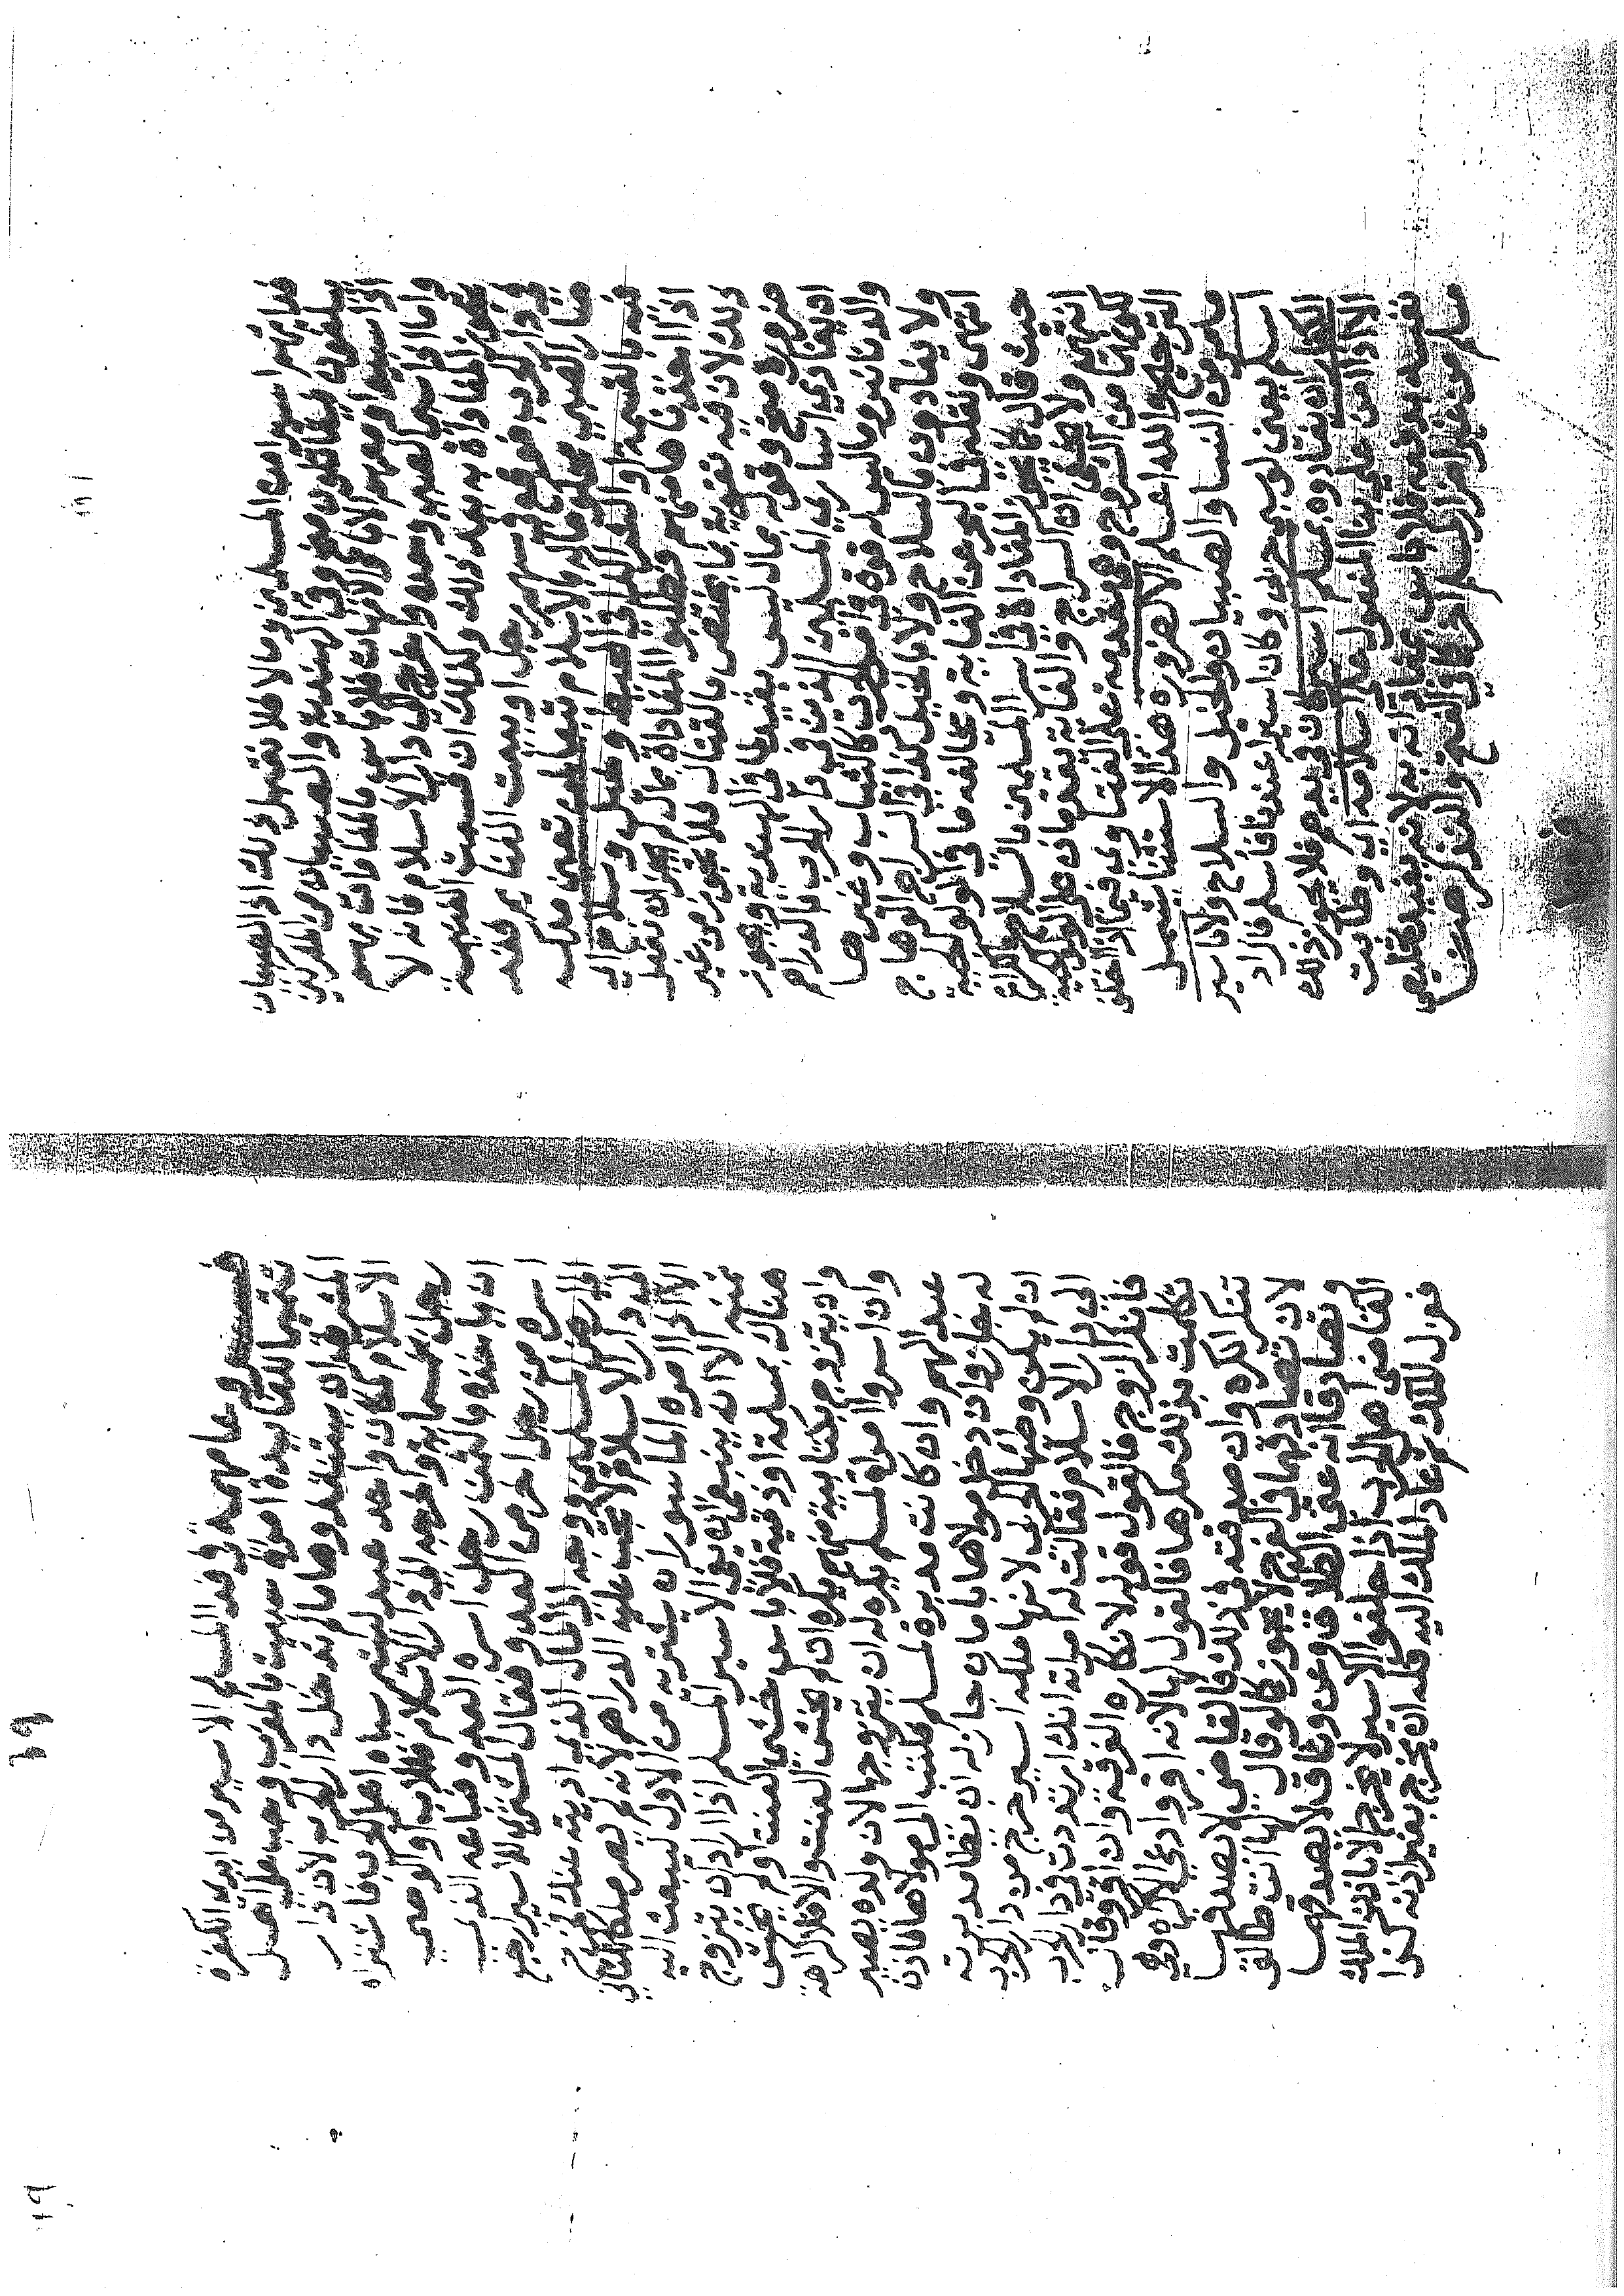 فدايهم اسيرا من المسلمين ومالا فلا تقتهل وذلك اذ الصبيان
يبلغون فيقاتلون منح وفي الهندية والصبيان من المشركين
اذا سبيوا ومعهم الابا والامهات فلا باس بالمفادات بهم
واما اذا سبي الصبي وحده واخرج الى دار الاسلام فانه لا
تجوز المفاداة به بعد ذلك وكذلك ان قسمت الغنيمة
في دار الحرب فوقع في سهم رجل او بيعت الغنايم فقد
صار الصبي محكوما له بالاسلام تبعا لمن تعين ملكه
فيه بالقسمة او الشرا وفي المحيط وخيل وسلاح اي
اذا اخذناها منهم فطلبوا المفاداة بمال لم يجز ان نفعل
ذلك لان فيه تقوية بما يختص بالقتال فلا يجوز من غير
ضرورة منح وقوله بمال ليس بقيد لما في الهندية ويجوز
ان يفادي اسارى المسلمين الذين في دار الحرب بالدراهم
والدنانير وما ليس له قوة في امر الحرب كالثياب وغيرها
ولا يفادون بالسلاح ولا بالخيل كذا في السراج الوهاج
انتهى ونقله في البحر عن الغاية ويخالفه ما في الولوالجية
حيث قال لا تجوز المفاداة باسير المسلمين بالسلاح والكراع
انتهى ولا يخفى ان السراج والغاية تقدمان على الولوالجية
لكونهما من الشروح وهي مقدمة على الفتاوى فيما اذا اطلق
الترجيح والله اعلم الا لضرورة هذا الاستثنا يشمل
ما مر من النسا والصبيان والخيل والسلاح ولا باسير
اسلم يعني لو سبي حربي وكان اسيرا عندنا فاسلم فاراد
الكفار ان يفادوه بمسلم اسير كان في يدهم فلا يجوز ذلك
الا اذا امن على بنا المفعول على اسلامه اي وطابت
نفسه بدفعه فلا باس بمفاداته به لانه يفيد تخليص
مسلم من غير اضرار لمسلم اخر كما في الفتح والتنوير
فروع مهمة في فدا المسلم الاسير من ايدي الكفرة
تتميما للفايدة امة سبيت بالمغرب وجب على اهل
المشرق ان يستنقذوها ما لم تدخل دار الحرب لان دار
الاسلام كمكان واحد عبد ليتيم سباه اهل الحرب فاشتراه
رجل منهم واخرجه الى دار الاسلام فللاب او الوصي
ان ياخذه بالثمن رجل اسره العدو فباعه الذي
اسره من رجل اخر من العدو فقال المشتري للاسير ارجع
الى دار الاسلام لا يجب عليه الدراهم لانه لم يصر ملكا للثاني
الا اذا امره الماسور ان يشتريه من الاول ليبعث اليه
منبه الا انه ينبغي ان الاسير المسلم اذا اراد ان يتزوج
هناك مسلمة او ذمية فلا باس ان خشي العنت وان لم يخش
وان يتزوج بكتابية منهم يكره ان لم يخش العنت والا فلا كراهة
وان اسروا امراة لمسلم يكره له ان يتزوجها لان ولده يصير
عبدا لهم وان كانت مدبرة لمسلم
ان لم يكن وطئها لانها ملكه اسير خرج من دار الحرب
الى دار الاسلام فقالت له امراته انك ارتددت في دار الحرب
فانكر الزوج فالقول قوله لانكاره الفرقة وان اقر وقال
تكلمت بذلك مكرها فالقول لها لانه اقر وادعى الاكراه وهي
تنكر الكره وان صدقته في ذلك فالقاضي لا يصدقها
لان تصادقهما في الفرج لا يجوز كما لو قال لها انت طالق
وتصادقا انه عنى الطلاق من وثاق لا يصدقهما
القاضي اهل الحرب اذا حلفوا الاسير لا يخرج الا باذن الملك
فزال الملك ثم عاد الملك اليه فله ان يخرج بغير اذنه كذا